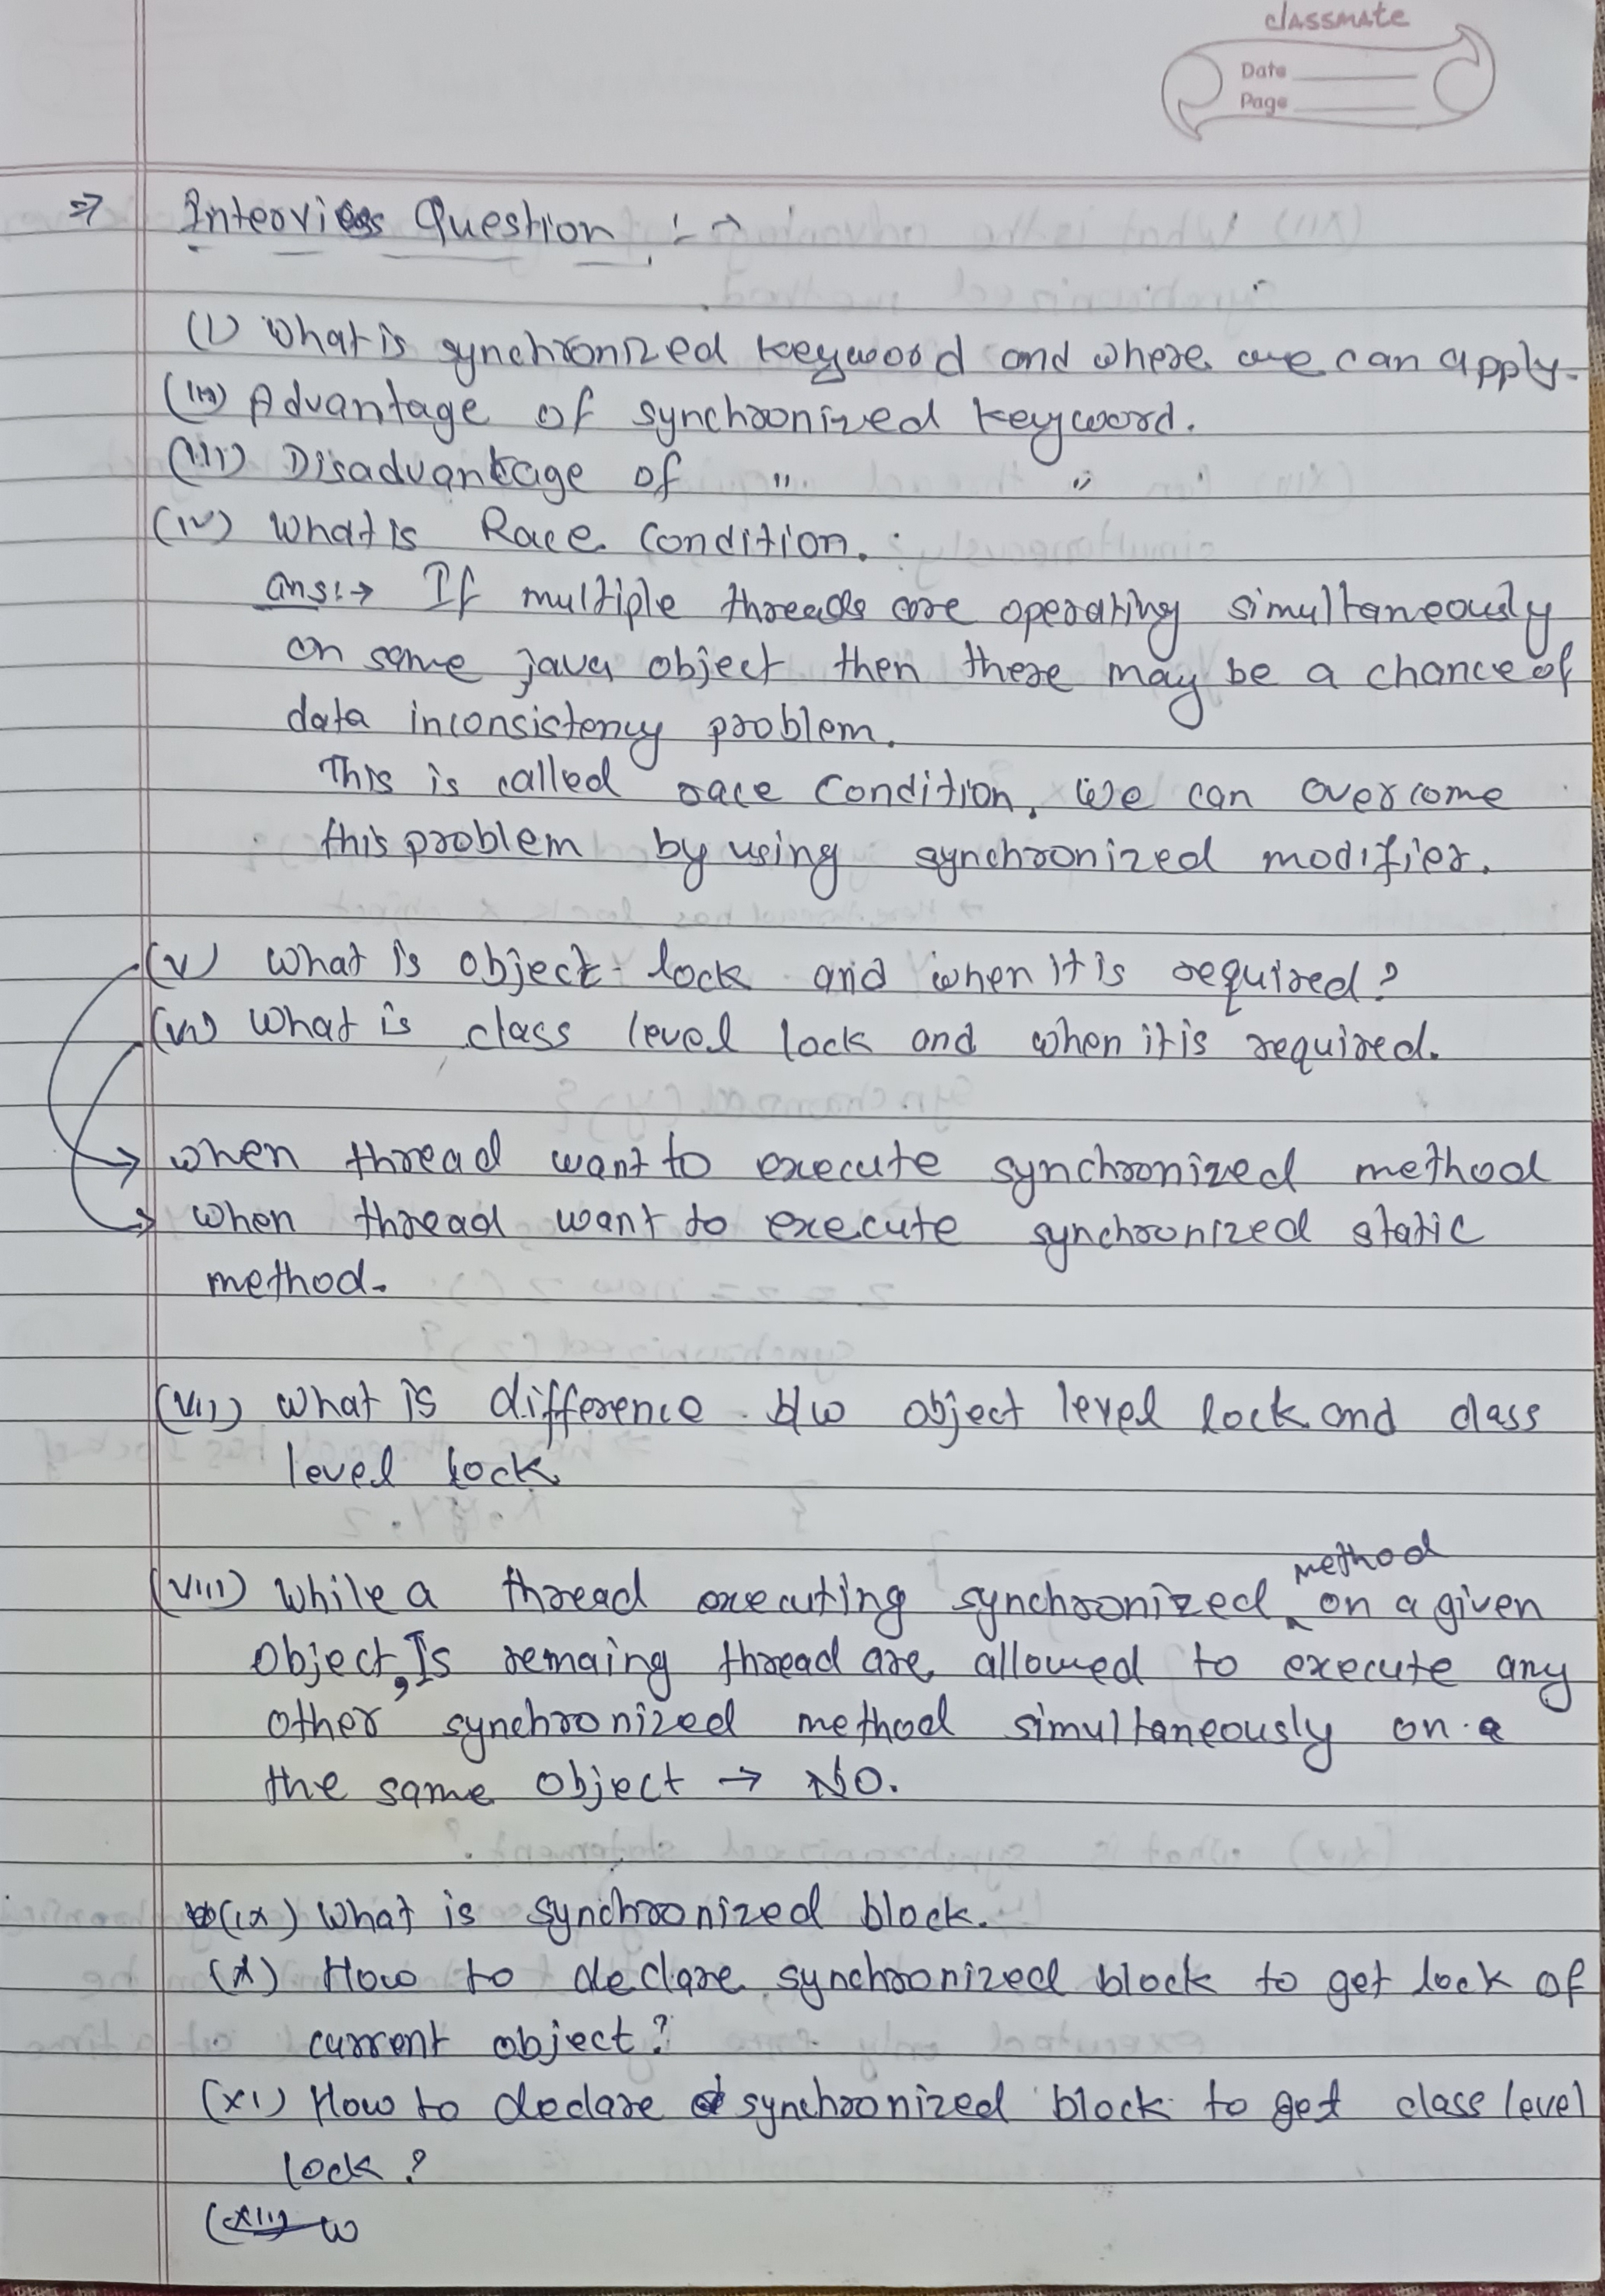 classmate
Date
Page
⇒ Interview Question :- →
(i) What is synchronized keyword and where we can apply.
(ii) Advantage of synchronized keyword.
(iii) Disadvantage of " "
(iv) What is Race Condition. :
ans:→ If multiple threads are operating simultaneously
on same java object then there may be a chance of
data inconsistency problem.
This is called race condition. We can overcome
this problem by using synchronized modifier.
(v) What is object lock and when it is required?
(vi) What is class level lock and when it is required.
→ when thread want to execute synchronized method
→ when thread want to execute synchronized static
method.
(vii) What is difference b/w object level lock and class
level lock
(viii) While a thread executing synchronized method on a given
object, Is remaing thread are allowed to execute any
other synchronized method simultaneously on a
the same object → NO.
(ix) What is synchronized block.
(x) How to declare synchronized block to get lock of
current object?
(xi) How to declare synchronized block to get class level
lock?
(xii) w